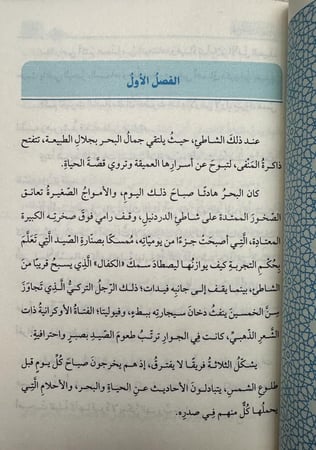 الفصلُ الأوّلُ
عند ذلكَ الشاطئِ، حيثُ يلتقي جمالُ البحرِ بجلالِ الطبيعةِ، تتفتح
ذاكرةُ المَنْفى، لتبوحَ عن أسرارِها العميقة وتروي قصَّةَ الحياةِ.
كان البحرُ هادئًا صباحَ ذلك اليومِ، والأمواجُ الصّغيرةُ تعانقِ
الصّخورَ الممتدة على شاطئِ الدردنيلِ، وقفَ رامي فوقَ صخرتِه الكبيرة
المعتادةِ، الَّتِي أصبحتْ جزءًا من يوميّاتِهِ، مُمسكًا بصنّارةِ الصّيدِ التي تَعَلَّمَ
بحُكمِ التجربةِ كيف يوازنُها ليصطادَ سمكَ «الكفال» الَّذِي يسبحُ قريبًا منَ
الشاطئِ، بينما يقفُ إلى جانبِه فيدات؛ ذلك الرّجلُ التركيُّ الَّذِي تَجاوَزَ
سِنَّ الخمسينَ ينفثُ دخانَ سيجارتِهِ ببطءٍ، وفيوليتا؛ الفتاةُ الأوكرانيةُ ذات
الشَّعرِ الذهبيِّ، كانت في الجوارِ ترتّبُ طعومَ الصّيدِ بصبرٍ واحترافيةٍ.
يشكّلُ الثلاثةُ فريقًا لا يفترقُ، إذ هم يخرجونَ صباحَ كُلِّ يومٍ قبل
طلوعِ الشمسِ، يتبادلونَ الأحاديثَ عنِ الحياةِ والبحرِ، والأحلامِ الَّتِي
يحملُها كُلٌّ منهم فِي صدرِهِ.